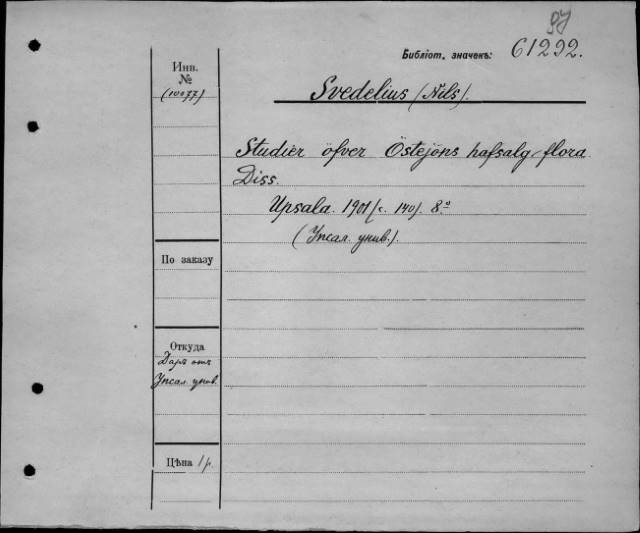 Библіот. значекъ: 61292.
Инв.
№
(10077)
Svedelius (Nils).
Studier öfver Östejöns hafsalg-flora
Diss.
Upsala. 1901 (с. 140). 8°
(Упсал. унив.).
По заказу
Откуда
Даръ отъ
Упсал. унив.
Цѣна 1 р.